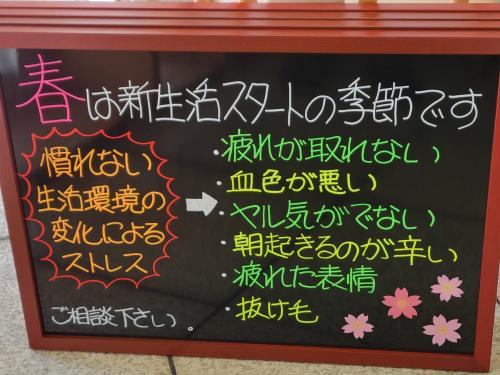 春は新生活スタートの季節です
慣れない
生活環境の
変化による
ストレス
・疲れが取れない
・血色が悪い
・ヤル気がでない
・朝起きるのが辛い
・疲れた表情
・抜け毛
ご相談下さい。